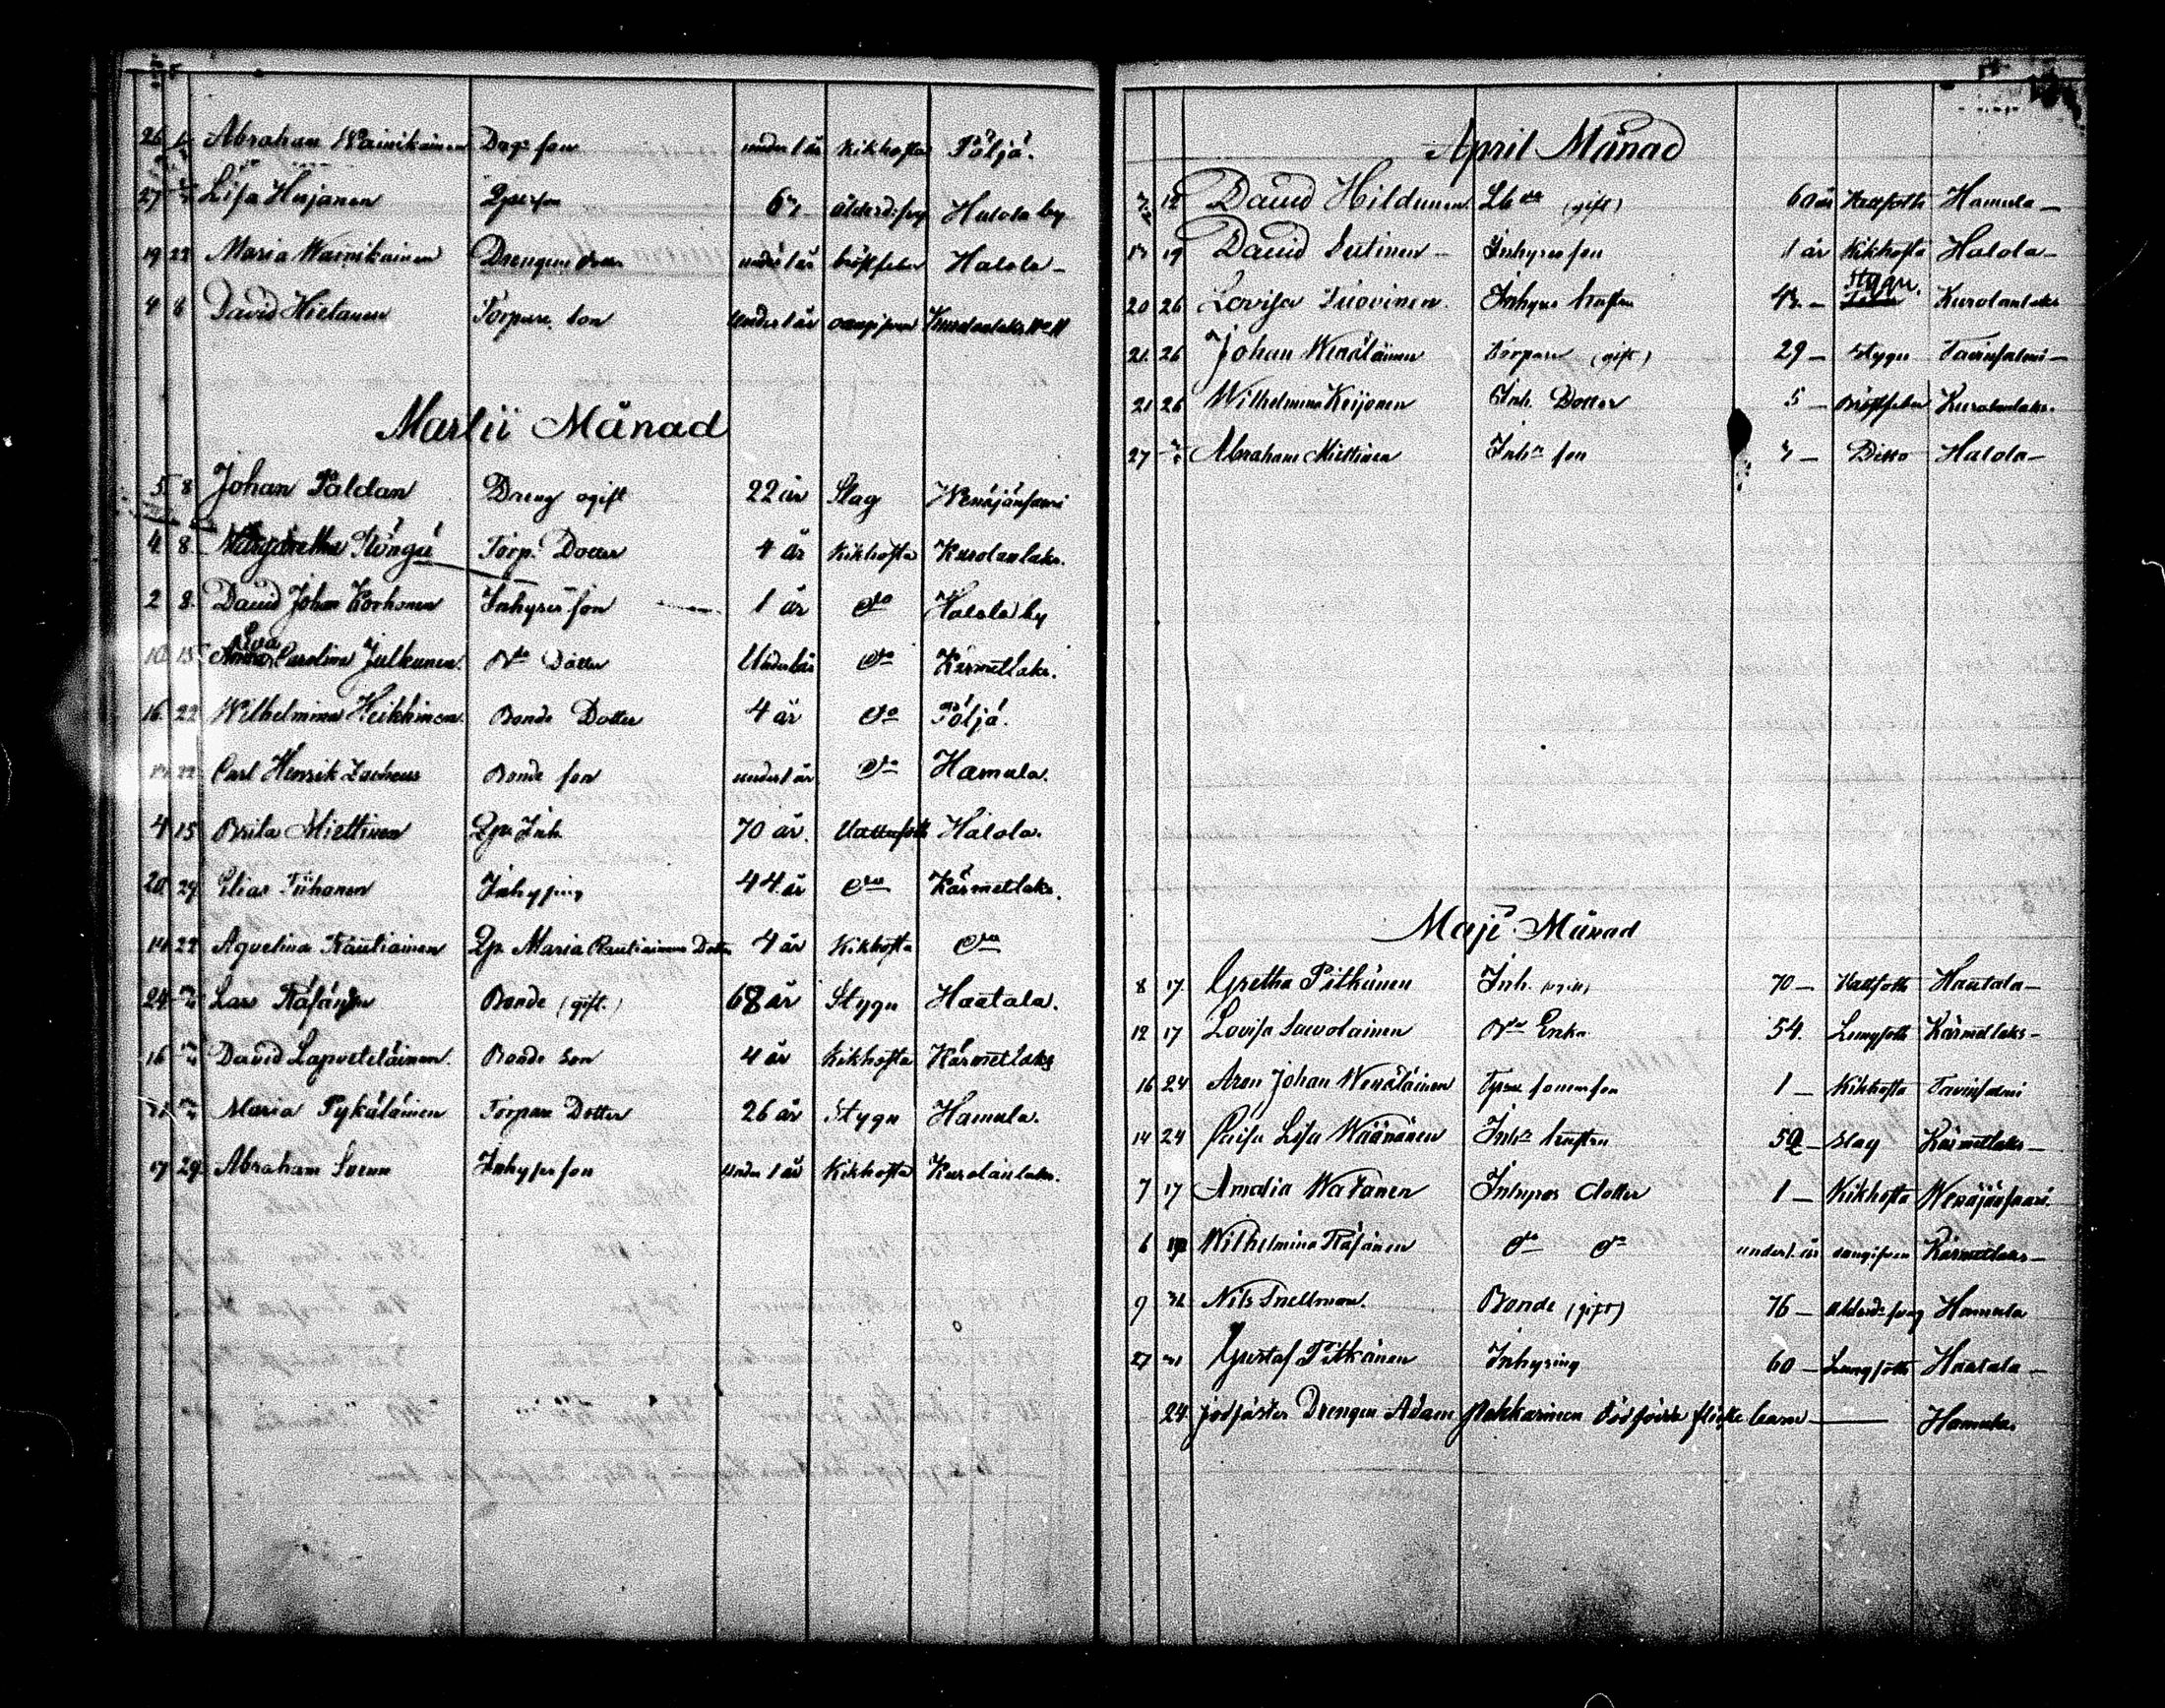 26 Abraham Wainikainen Dreg: son under 1 år Kikhosta Pöljä.
27 Lisa Hujanen Qperson 67 ålderd:svag Halola by
19 22 Maria Wainikainen Drengens dotter under 1 år bröstfeber Halola –
4 8 David Hietanen Torpare son under 1 år oangifven Kurolanlaks No 11
Martii Månad
5 8 Johan Paldan Dreng ogift 22 år Slag Wenäjänsaari
4 8 Margaretha Pöngü Torp. Dotter 4 år Kikhosta Kurolanlaks.
2 8. David Johan Korhonen Inhyses son 1 år do Halola by
10 15 Eva Carolina Julkunen. Dotter Under 1 år do Kärmetlaks.
16 22 Wilhelmina Heikkinen. Bonde Dotter 4 år do Pöljä.
22 Carl Henrik Zacheus Bonde son under 1 år do Hamula.
4 15 Brita Miettinen Qp. Inh. 70 år. Vattusott Halola.
20 29 Elias Tiihonen Inhysing 44 år do Kärmetlaks.
14 22 Agvelina Rautiainen Qp. Maria Rautiainens Dotter 4 år Kikhosta do
24 Lars Räsänen Bonde (gift.) 68 år Stygn Haatala.
16 David Lapveteläinen. Bonde Son 4 år Kikhosta Kärmetlaks
Maria Pykäläinen Torpare Dotter 26 år Stygn Hamula.
17 29 Abraham Sven Inhyses son under 1 år Kikhosta Kurolanlaks.
April Månad
12 David Hildunen. (gift) 60 år Hamula –
19 David Sutinen – Inhyses son 1 år Kikhosta Halola –
20 26 Lovisa Tuovinen. Inhyses hustru – Stygn. Kurolanlaks
21. 26 Johan Wenäläinen Torpare (gift) 29 – Stygn Tavinsalmi –
21 26 Wilhelmina Keijonen Inh. Dotter 5 – Bröstfeber Kurolanlaks.
27 Abraham Miettinen Inhs son – Ditto Halola –
Maji Månad
8 17 Gretha Pitkänen Inh. 70 – Vattsott Haatala –
12 17 Lovisa Savolainen Enka 54. Lungsott Kärmetlaks –
16 24 Aron Johan Wenäläinen sonens son 1 – Kikhosta Tavinsalmi
14 24 Caisa Lisa Wäänänen Inhs hustru 52 – Slag Kärmetlaks –
7 17 Amalia Watanen Inhyses dotter 1 – Kikhosta Wenäjänsaari.
6 Wilhelmina Räsänen do do under 1. år oangifven Kärmetlaks –
9 Nils Snellman. Bonde (gift) 76 – ålderds svag Hamula
27 31 Gustaf Pitkänen Inhysing 60 – Lungsott Haatala –
24. Drengen Adam Pakkarinen dödfödde flicke barn — Hamula.